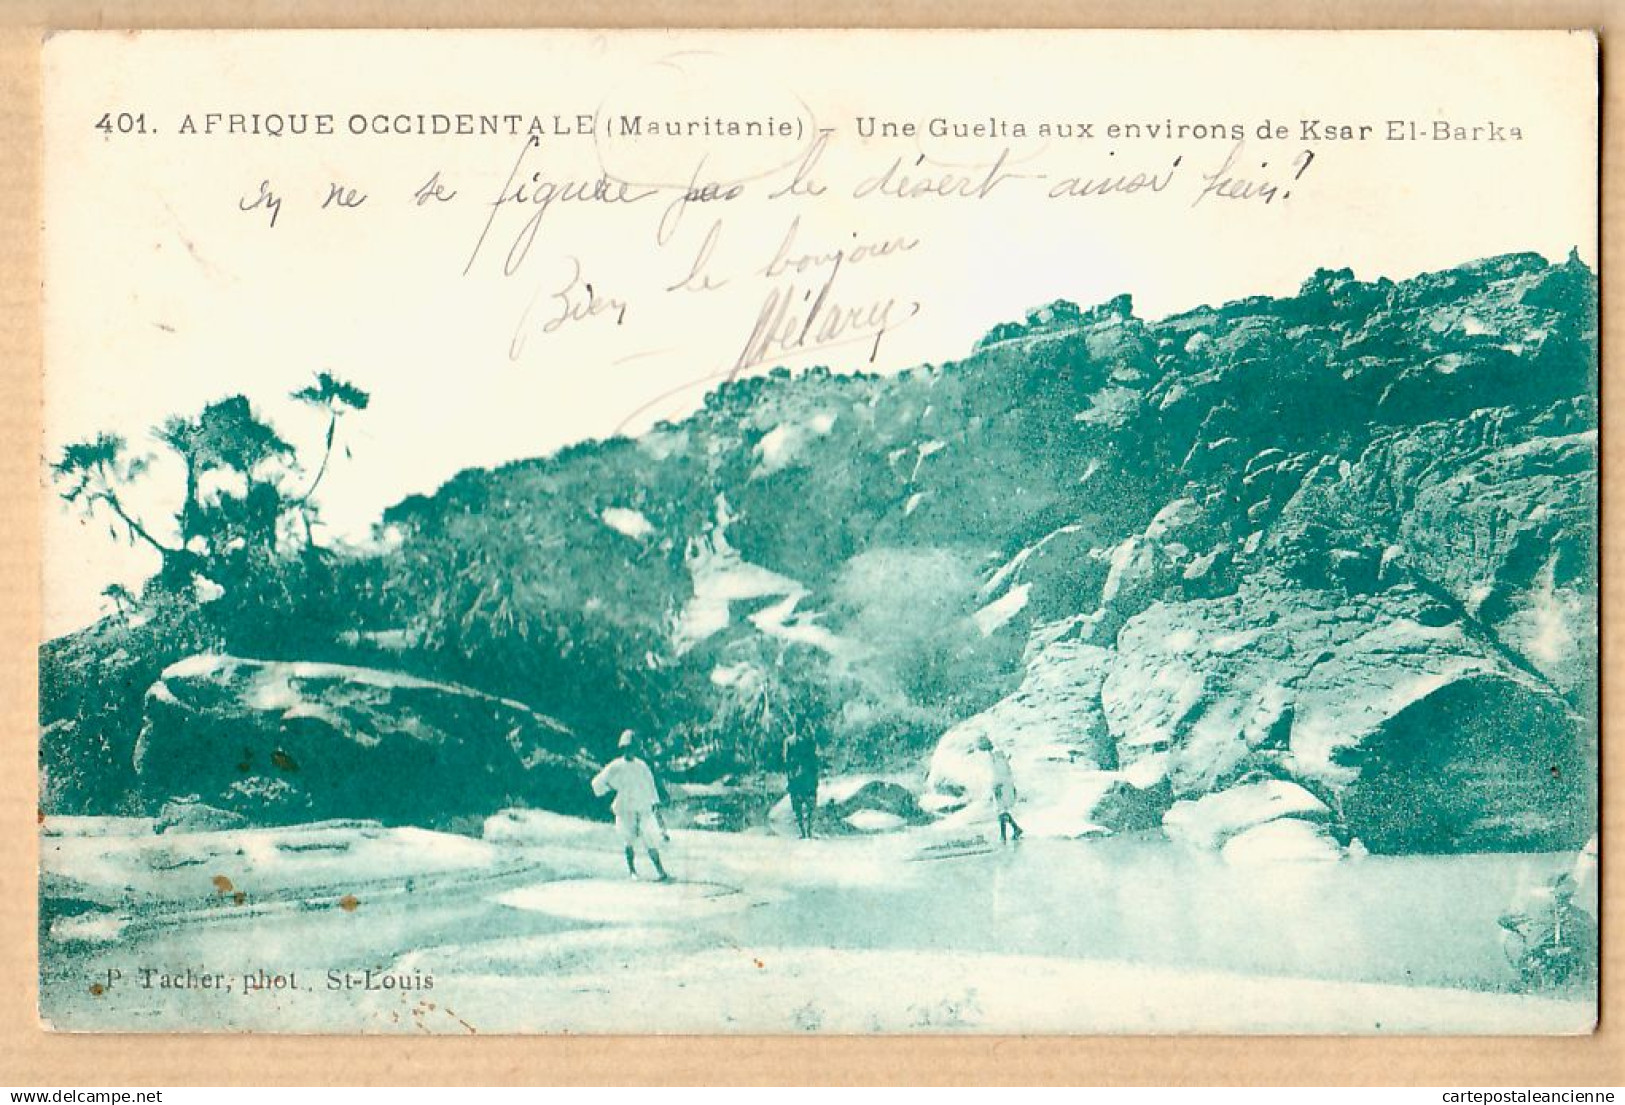 401. AFRIQUE OCCIDENTALE (Mauritanie) - Une Guelta aux environs de Ksar El-Barka
on ne se figure pas le désert ainsi hein?
Bien le bonjour
Hélary
P. Tacher, phot. St-Louis
delcampe.net
cartepostaleancienne